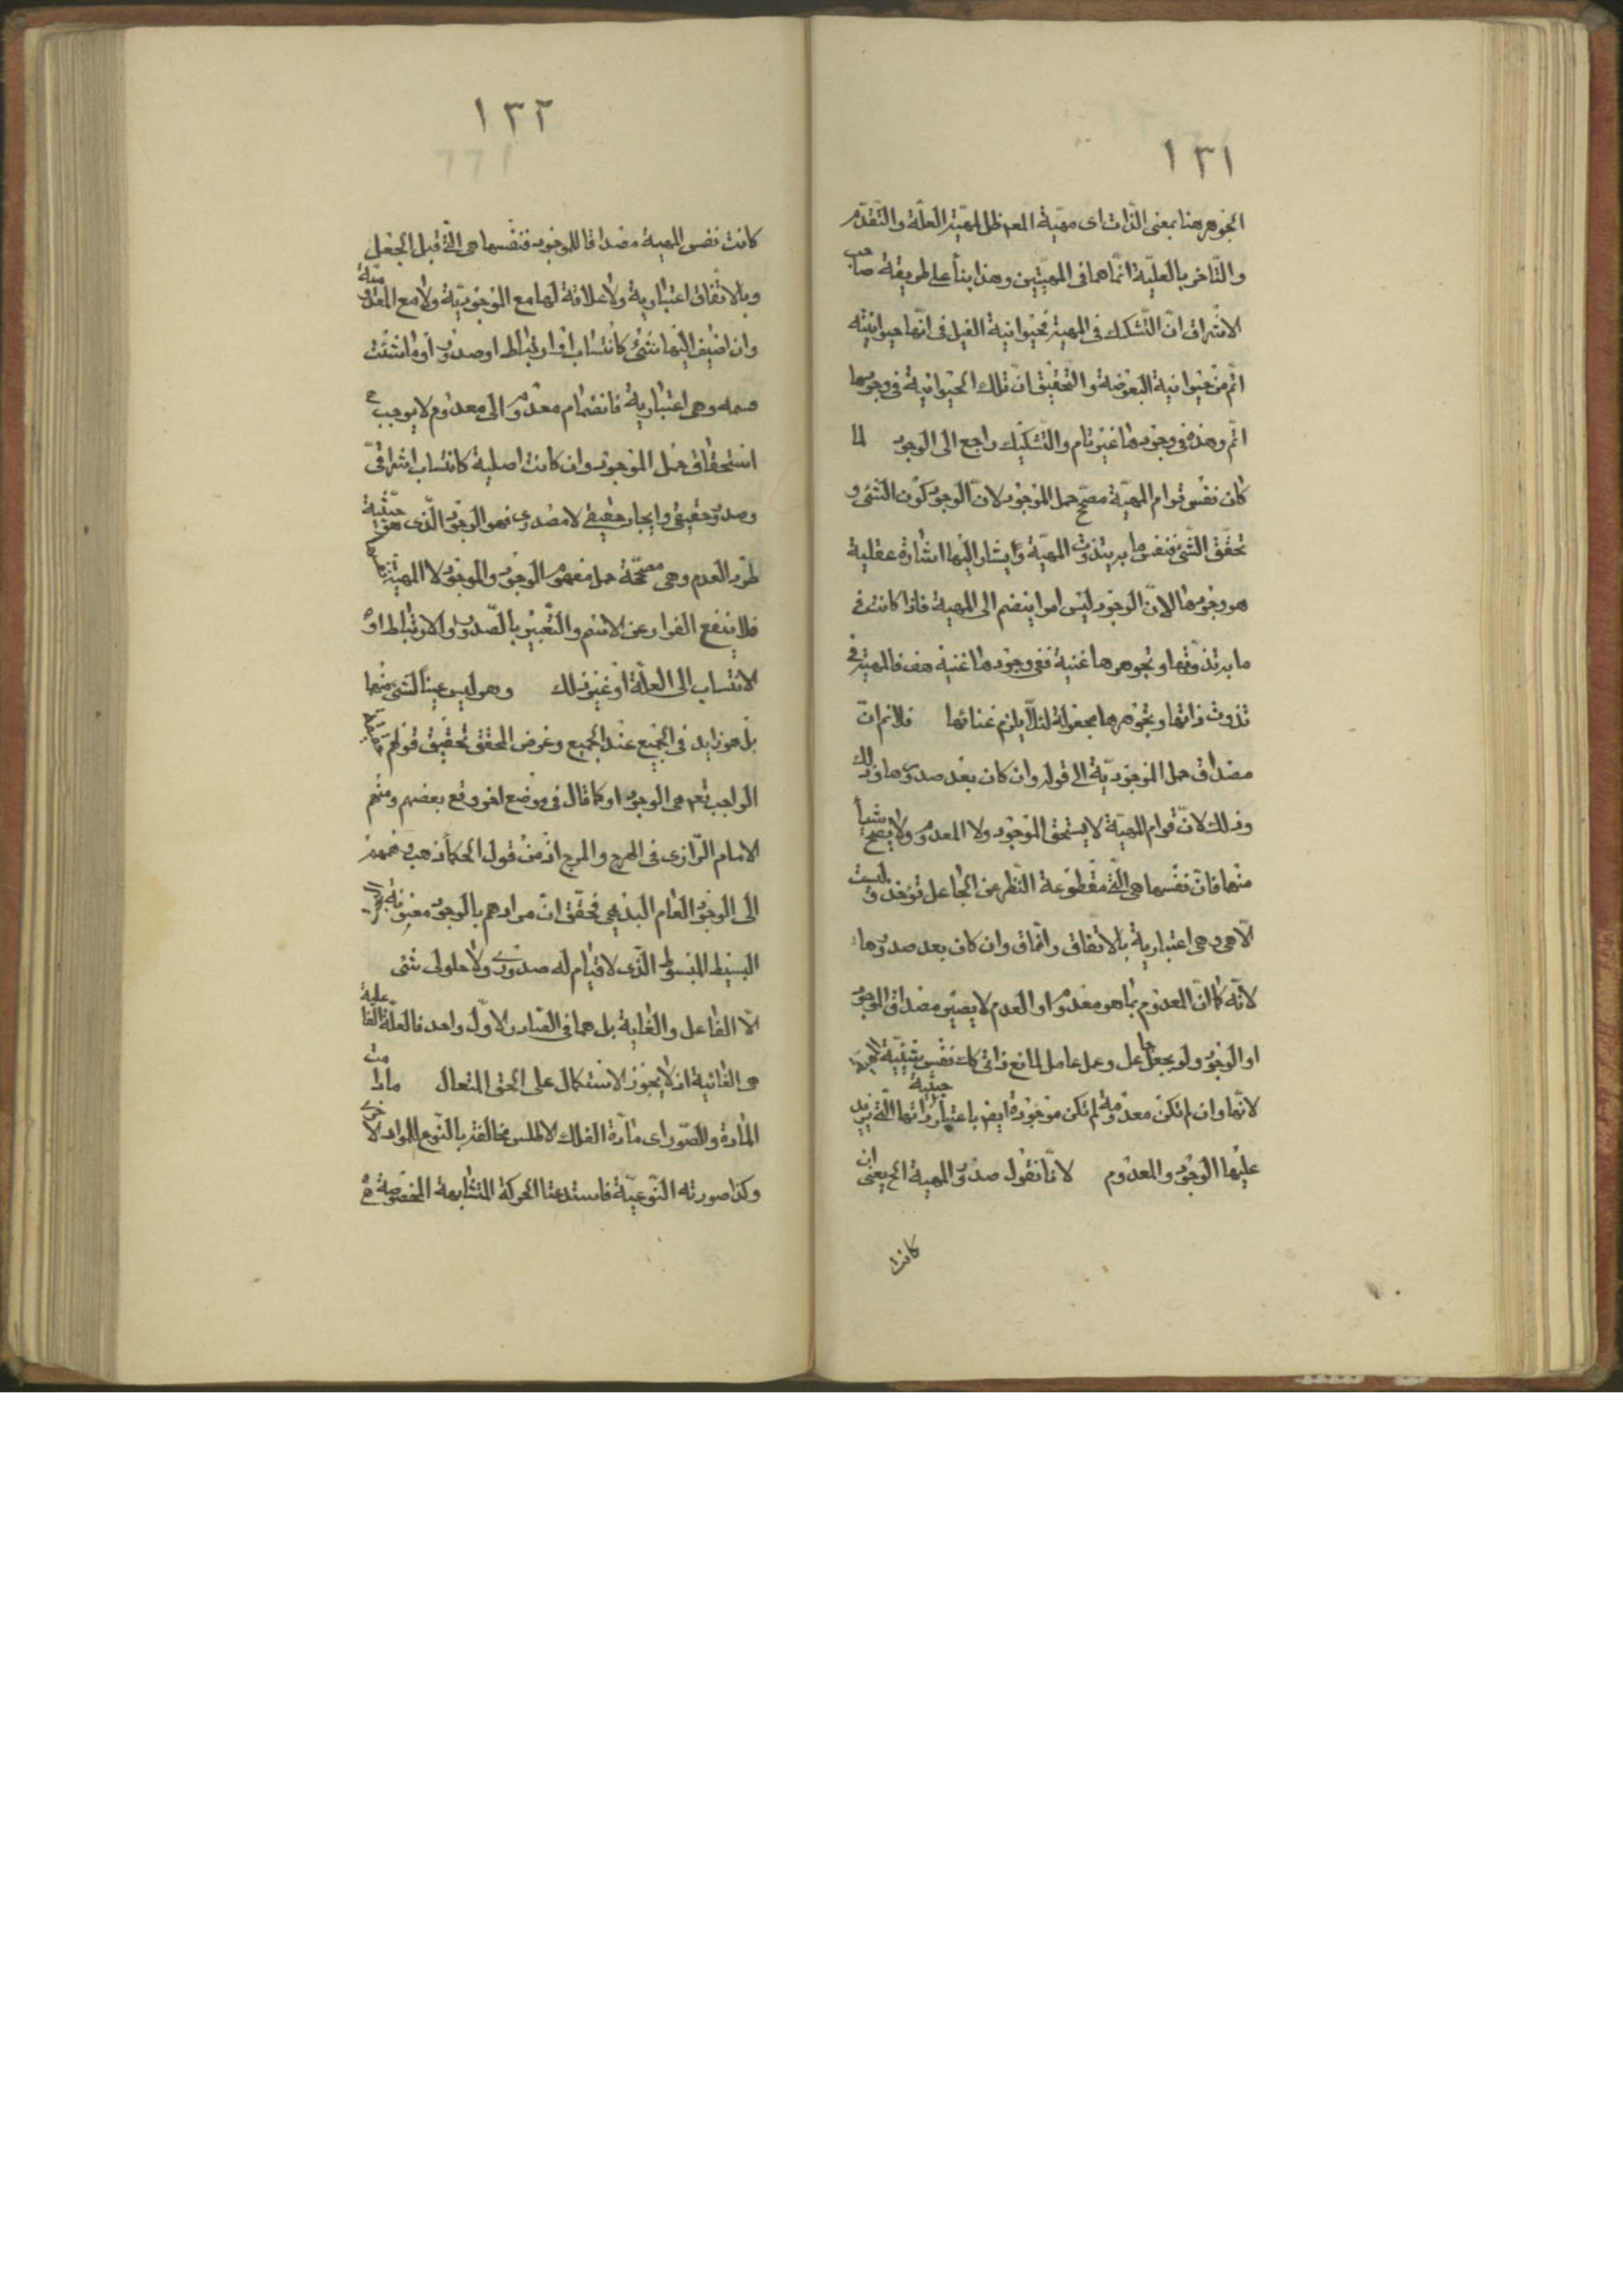 ١٣١
الجوهر هنا بمعنى الذات اى مهيّة المعه ظل لمهيّة العلّة والتّقدّم
والتّاخر بالعليّة انّما هما فى المهيّتين وهذا بنأ على طريقة صاحب
الاشراق انّ التّشكك فى المهية فحيوانية الفيل فى انّها حيوانيته
اتم من حيوانية البعوضة والتحقيق انّ تلك الحيوانية فى وجودها
اتم وهذه فى وجودها غير تام والتّشكيك راجع الى الوجود لما
كان نفس قوام المهيّة مصحّح حمل الموجود لانّ الوجود كون الشئ و
تحقّق الشّئ فنفس ما به يتذوت المهيّة ويشار اليها اشارة عقلية
هو وجودها لانّ الوجود ليس امرا ينضم الى المهية فاذا كانت فى
ما به تذوّتها وتجوهرها غنية ففى وجودها غنية هف فالمهية فى
تذوت ذاتها وتجوهرها مجعولة لئلّا يلزم غنائها فلا نم انّ
مصداق حمل الموجوديّة الى قوله وان كان بعد صدورها وذلك
وذلك لانّ قوام المهيّة لا يستحق الموجود ولا المعدوم ولا يصحح شيأ
منها فانّ نفسها هى الّتى مقطوعة النّظر عن الجاعل تؤخذ وليست
الّا هى وهى اعتبارية بالاتّفاق واتّفاق وان كان بعد صدورها
لانّه كما انّ المعدوم بما هو معدوم او العدم لا يصير مصداق الموجود
او الوجود ولو بجعل جاعل وعمل عامل لمانع ذاتى كك نفس شيئيّة المهية
لانّها وان لم تكن معدومة لم تكن موجودة ايض باعتبار حيثية ذاتها الّتى نريد
عليها الوجود والمعدوم لانّا نقول صدور المهية الخ يعنى ان
كانت
١٣٢
كانت نفس المهية مصداقا للوجود فنفسها هى التى قبل الجعل
وبالاتّفاق اعتبارية ولا علاقة لها مع الموجوديّة ولا مع المعدومية
وان اضيف اليها شئ كانتساب او ارتباط او صدور او ما شئت
فسمه وهى اعتبارية فانضمام معدوم الى معدوم لا يوجب
استحقاق حمل الموجود وان كانت اصلية كانتساب اشراقىّ
وصدور حقيقى وايجاد حقيقى لا مصدرى فهو الوجود الّذى هو حيثية
طرد العدم وهى مصححّة حمل مفهوم الوجود والموجود لا المهية
فلا ينفع الفرار عن الاسم والتّعبير بالصّدور والارتباط او
الانتساب الى العلّة او غير ذلك وهو ليس عينا لشئ منها
بل هو زايد فى الجميع عند الجميع وغرض المحقق تحقيق قولهم
الواجب تعم هى الوجود او كما قال فى موضع اخر وقع بعضهم ومنهم
الامام الرّازى فى الهرج والمرج اذ من قول الحكمأ ذهب وهمهم
الى الوجود العام البديهى فحقّق انّ مرادهم بالوجود معنونه
البسيط المبسوط الّذى لا قيام له صدورى ولا حلولى شئ
الّا الفاعل والغاية بل هما فى الصّادر الاوّل واحد فالعلّة الفاعلية
هى الغائية اذ لا يجوز الاستكمال على الحق المتعال مادامت
المادة والصّور اى مادّة الفلك الاطلس مخالفة بالنّوع للمواد الاخرى
وكذا صورته النّوعيّة فاستدعتا الحركة المتشابهة المخصوصة